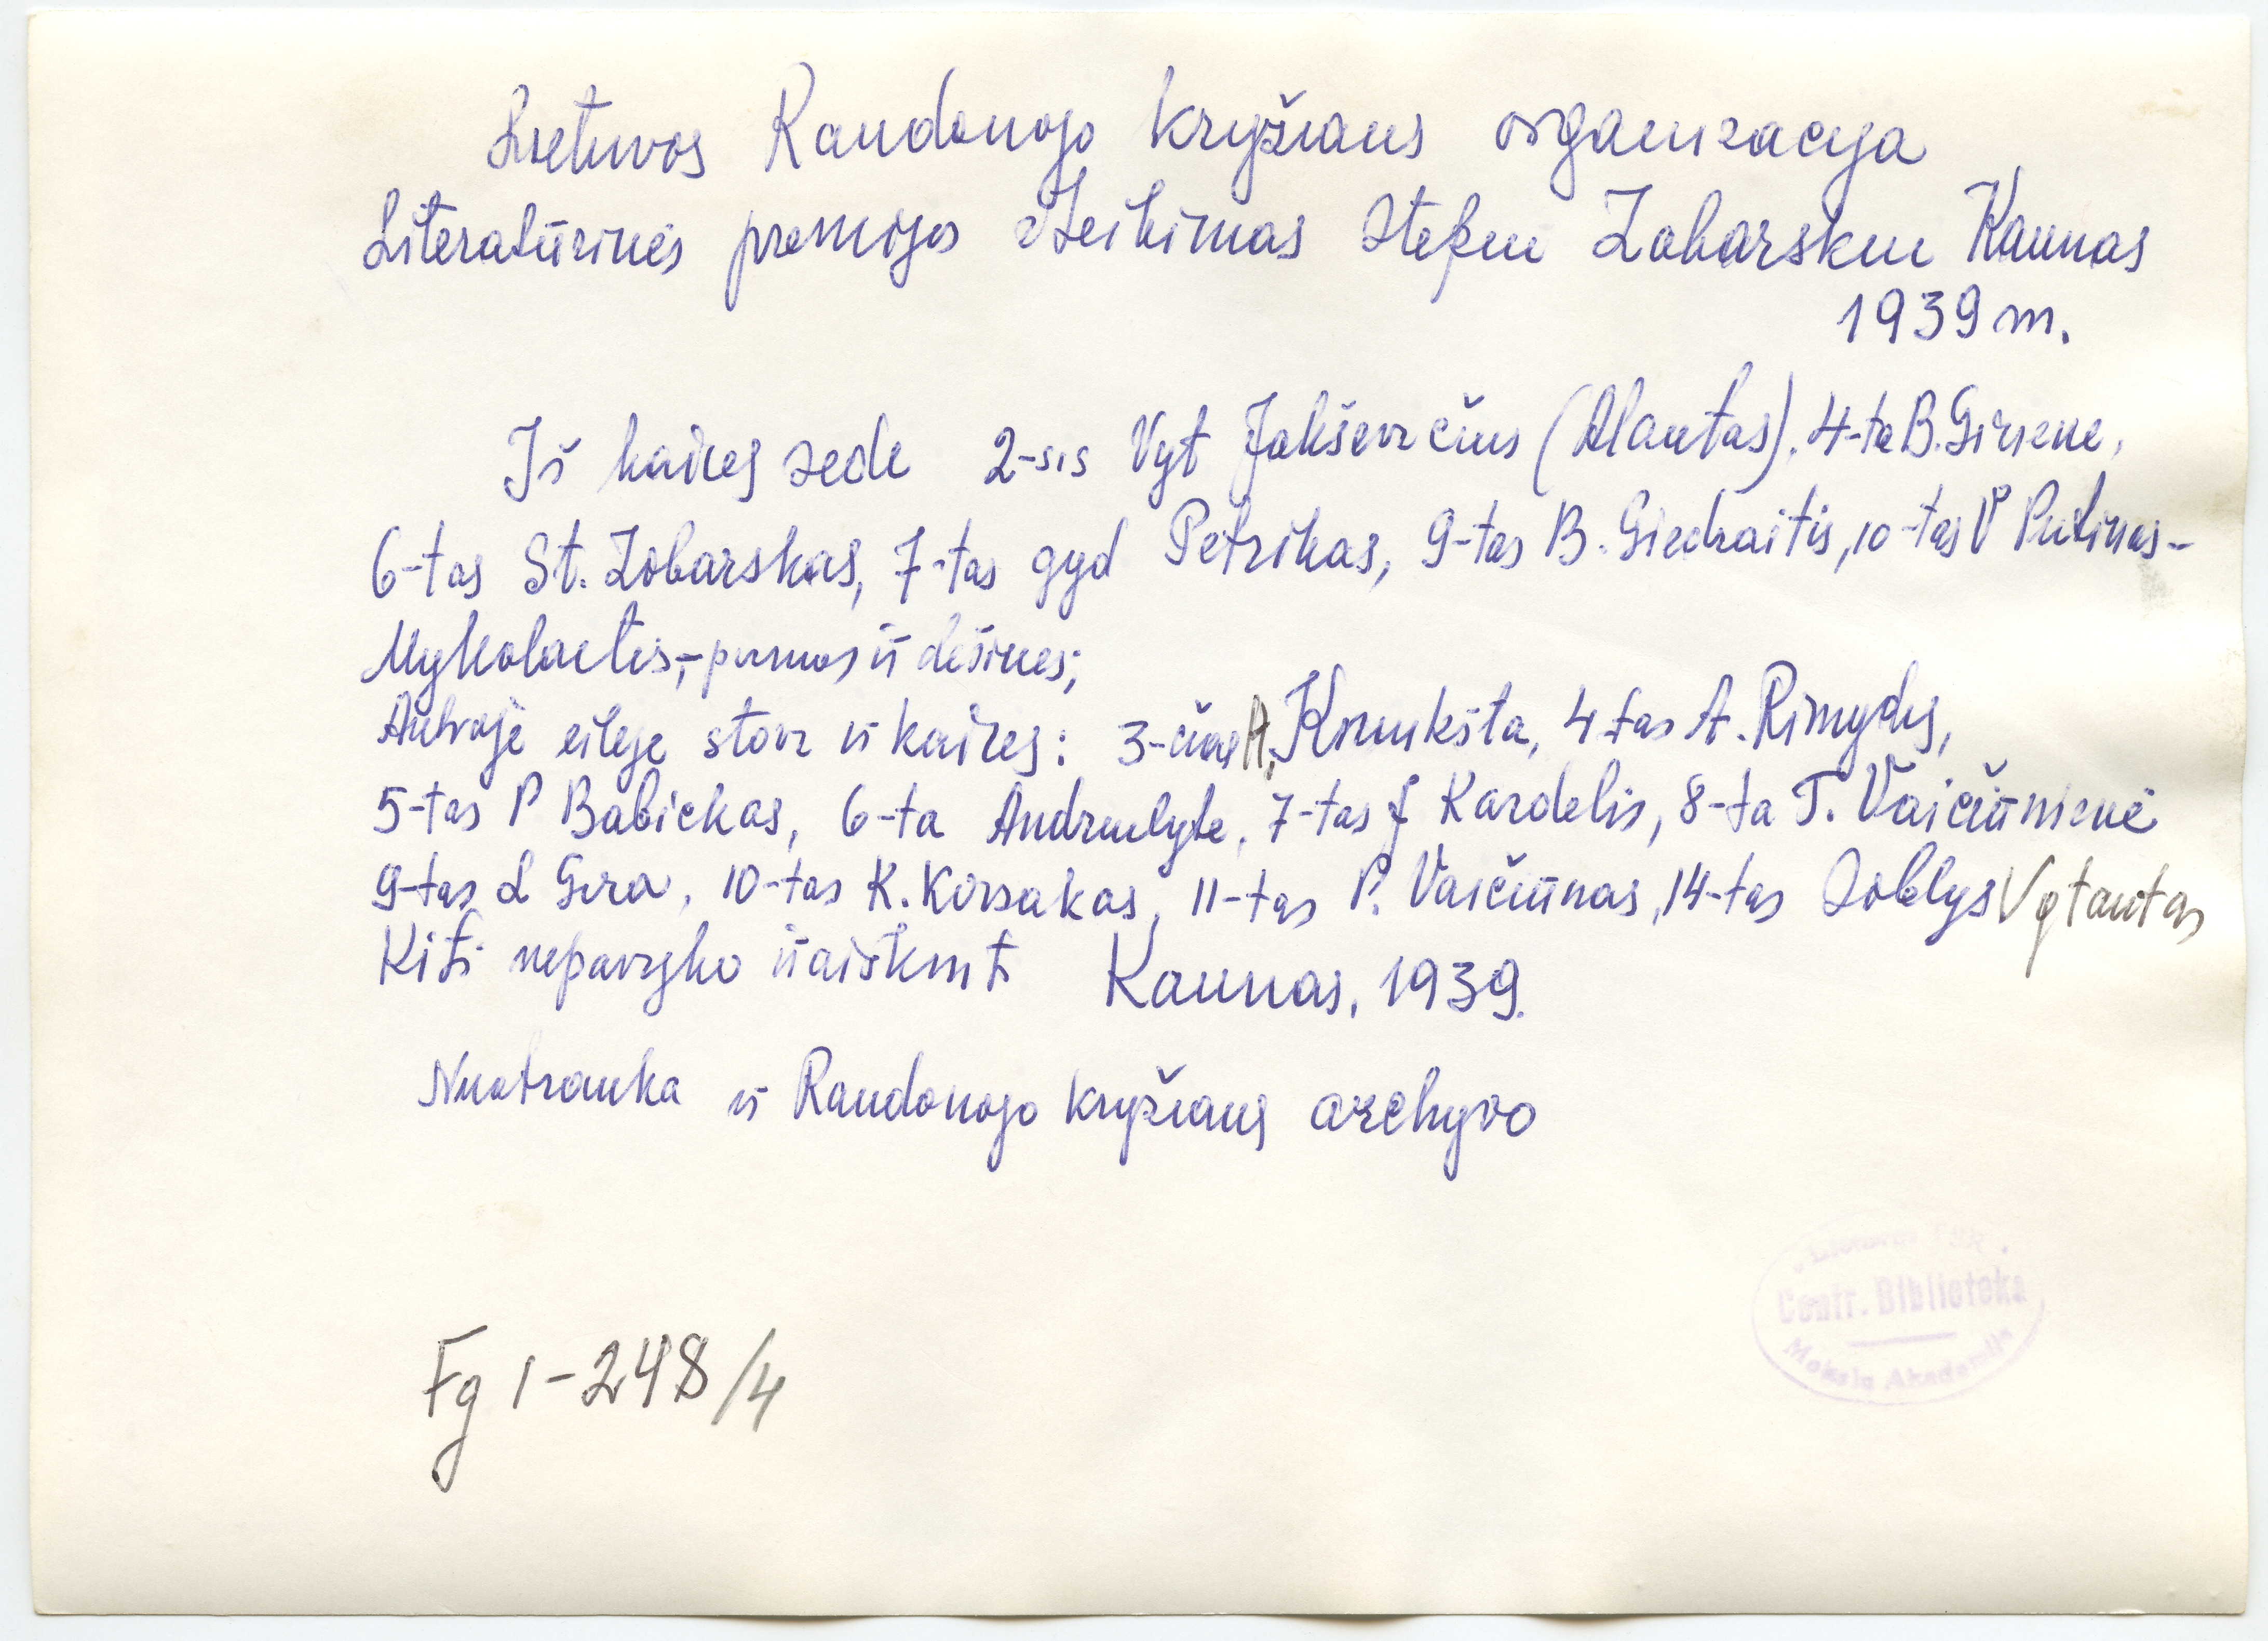 Lietuvos Raudonojo kryžiaus organizacija
Literatūrinės premijos įteikimas Stepui Zobarskui Kaunas
1939 m.
Iš kairės sėdi 2-sis Vyt Jakševičius (Alantas). 4-ta B. Girienė,
6-tas St. Zobarskas, 7-tas gyd Petrikas, 9-tas B. Giedraitis, 10-tas V Putinas-
Mykolaitis,- pirmas iš dešinės;
Antroje eilėje stovi iš kairės: 3-čias A. Kriukšta, 4-tas A. Rimydis,
5-tas P Babickas, 6-ta Andriulytė, 7-tas J Kardelis, 8-ta T. Vaičiūnienė
9-tas L Gira, 10-tas K. Korsakas, 11-tas P. Vaičiūnas, 14-tas Zoblys Vytautas
Kiti nepavyko išaiškinti Kaunas, 1939.
Nuotrauka iš Raudonojo kryžiaus archyvo
Lietuvos TSR
Centr. Biblioteka
Mokslų Akademija
Fg 1-248/4